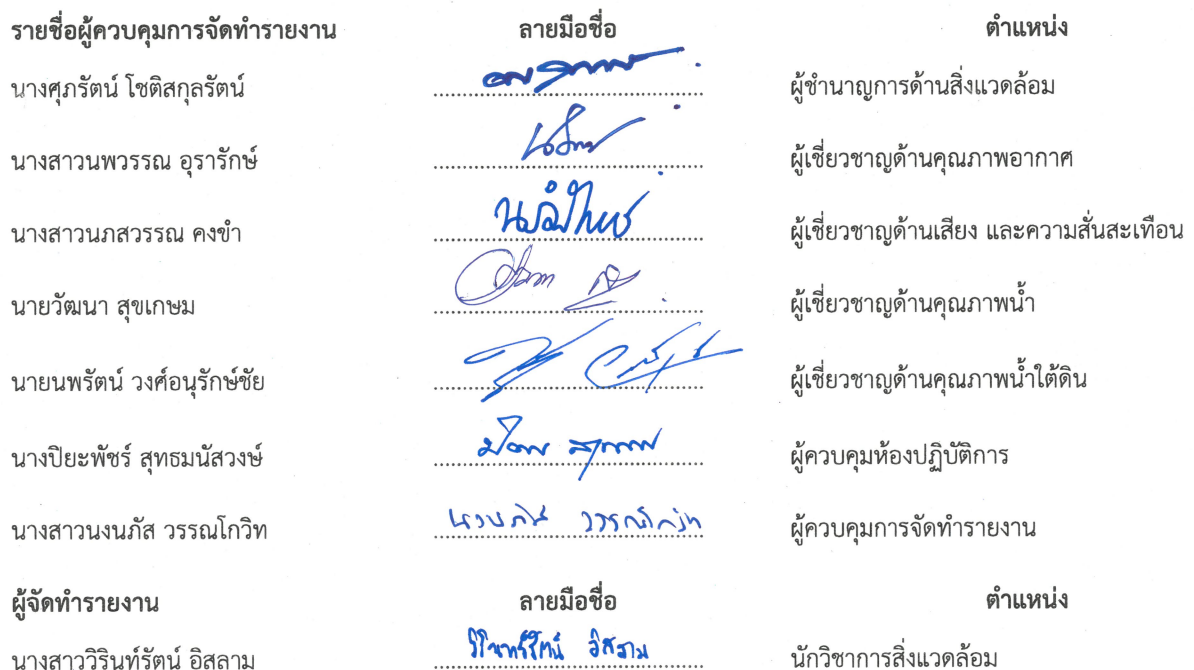 รายชื่อผู้ควบคุมการจัดทำรายงาน ลายมือชื่อ ตำแหน่ง
นางศุภรัตน์ โชติสกุลรัตน์ ผู้ชำนาญการด้านสิ่งแวดล้อม
นางสาวนพวรรณ อุรารักษ์ ผู้เชี่ยวชาญด้านคุณภาพอากาศ
นางสาวนภสวรรณ คงขำ ผู้เชี่ยวชาญด้านเสียง และความสั่นสะเทือน
นายวัฒนา สุขเกษม ผู้เชี่ยวชาญด้านคุณภาพน้ำ
นายนพรัตน์ วงศ์อนุรักษ์ชัย ผู้เชี่ยวชาญด้านคุณภาพน้ำใต้ดิน
นางปิยะพัชร์ สุทธมนัสวงษ์ ผู้ควบคุมห้องปฏิบัติการ
นางสาวนงนภัส วรรณโกวิท นงนภัส วรรณโกวิท ผู้ควบคุมการจัดทำรายงาน
ผู้จัดทำรายงาน ลายมือชื่อ ตำแหน่ง
นางสาววิรินท์รัตน์ อิสลาม วิรินทร์รัตน์ อิสลาม นักวิชาการสิ่งแวดล้อม